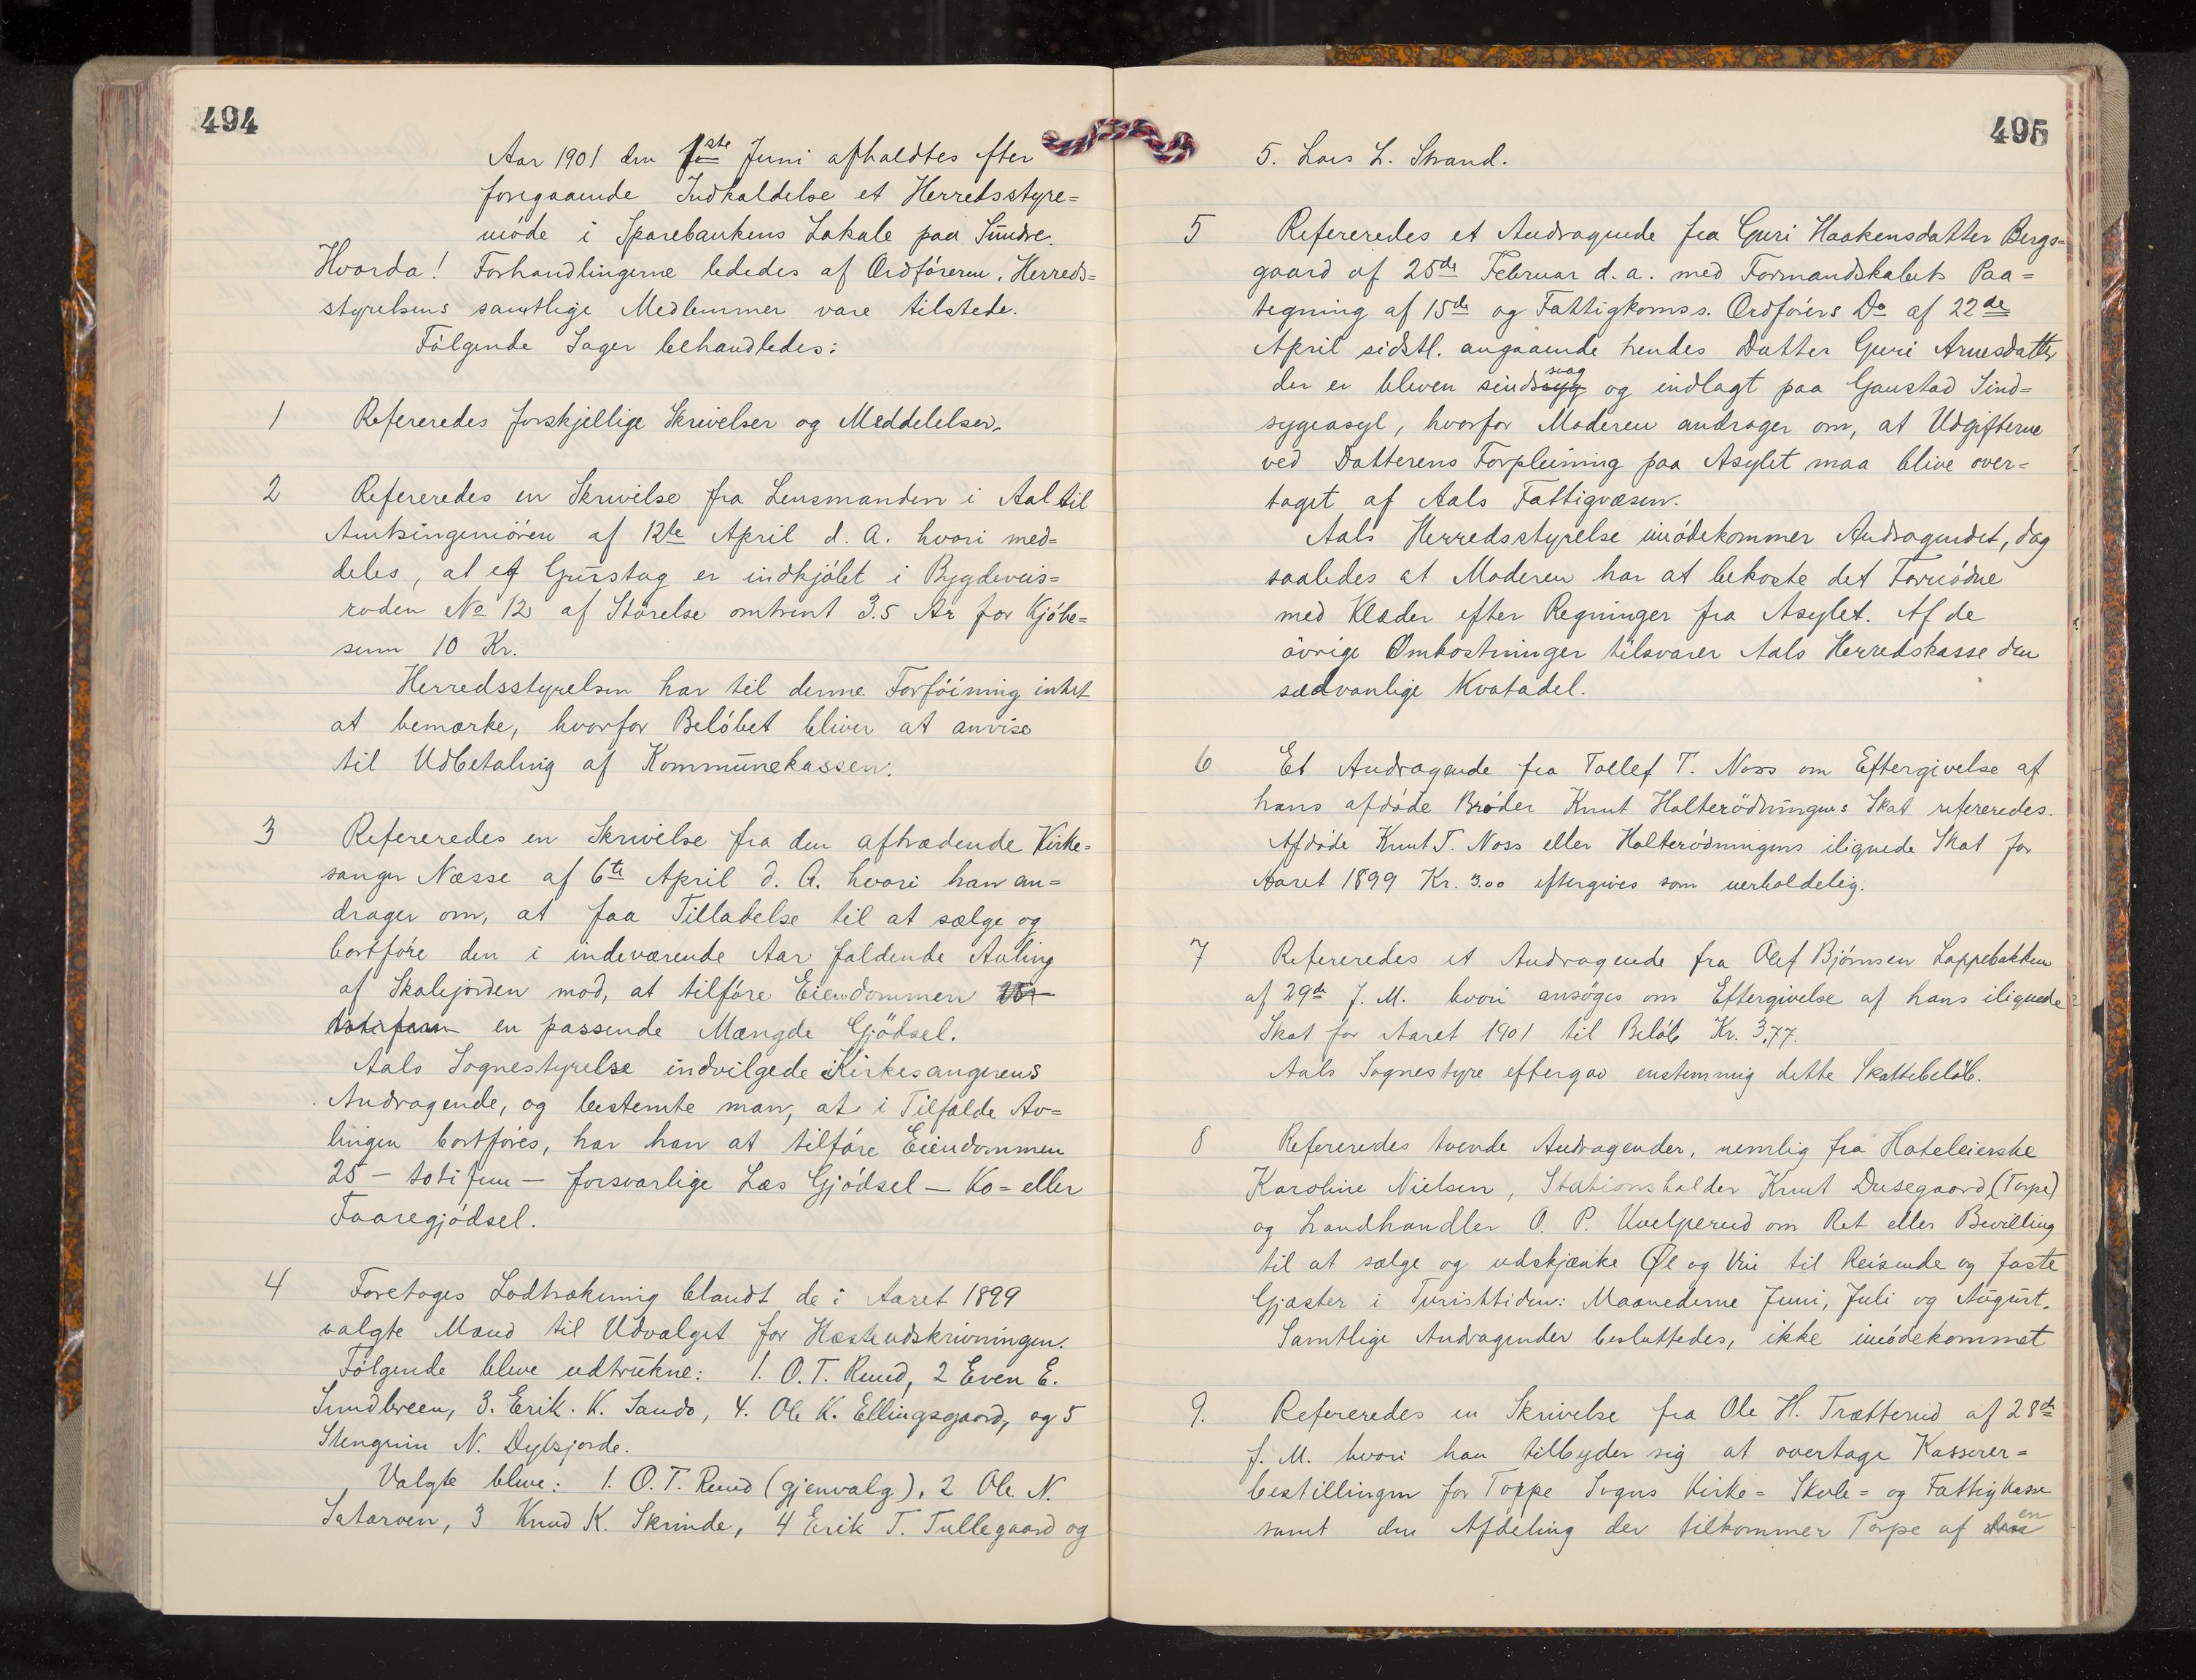 494
Aar 1901 den 1ste Juni afholdtes efter
foregaaende Indkaldelse et Herredsstyre=
möde i Sparebankens Lokale paa Sundre.
Hvorda! Forhandlingerne lededes af Ordföreren. Herreds=
styrelsens samtlige Medlemmer vare tilstede.
Fölgende Sager behandledes:
1 Refereredes forskjellige Skrivelser og Meddelelser.
2 Refereredes en Skrivelse fra Lensmanden i Aal til
Amtsingeniören af 12te April d. A. hvori med=
deles, at et Grustag er indkjöbt i Bygdeveis=
roden No 12 af Störelse omtrent 3.5 Ar for Kjöbe=
sum 10 Kr.
Herredsstyrelsen har til denne Forföining intet
at bemærke, hvorfor Belöbet bliver at anvise
til Udbetaling af Kommunekassen.
3 Refereredes en Skrivelse fra den aftrædende Kirke=
sanger Næsse af 6te April d. A. hvori han an=
drager om, at faa Tilladelse til at sælge og
bortföre den i indeværende Aar faldende Avling
af Skolejorden mod, at tilföre Eiendommen 25 –
toti fem en passende Mængde Gjödsel.
Aals Sognestyrelse indvilgede i Kirkesangerens
Andragende, og bestemte man, at i Tilfælde Av=
lingen bortföres, har han at tilföre Eiendommen
25 – toti fem – forsvarlige Læs Gjödsel – Ko= eller
Faaregjödsel.
4 Foretoges Lodtrækning blandt de i Aaret 1899
valgte Mænd til Udvalget for Hesteudskrivningen.
Fölgende bleve udtrukne: 1. O. T. Ruud, 2 Even E.
Sundbreen, 3. Erik. K. Sando, 4. Ole K. Ellingsgaard, og 5
Stengrim N. Dybsjorde.
Valgte bleve: 1. O. T. Ruud (gjenvalg), 2 Ole N.
Sataroen, 3 Knud K. Skrinde, 4 Erik T. Tullegaard og
495
5. Lars L. Strand.
5 Refereredes et Andragende fra Guri Haakensdatter Bergs=
gaard af 25de Februar d. a. med Formandskabets Paa=
tegning af 15de og Fattigkomss. Ordförers Do af 22de
April sidstl. angaaende hendes Datter Guri Arnesdatter
der er bleven sindssyg svag og indlagt paa Gaustad Sind=
sygeasyl, hvorfor Moderen andrager om, at Udgifterne
ved Datterens Forpleining paa Asylet maa blive over=
taget af Aals Fattigvæsen.
Aals Herredsstyrelse imödekommer Andragendet, dog
saaledes at Moderen har at bekoste det Fornödne
med Klæder efter Regninger fra Asylet. Af de
övrige Omkostninger tilsvarer Aals Herredskasse den
sædvanlige Kvotadel.
6 Et Andragende fra Tollef T. Noss om Eftergivelse af
hans afdöde Broder Knut Halterödningens Skat refereredes.
Afdöde Knut T. Noss eller Halterödningens ilignede Skat for
Aaret 1899 Kr. 3.00 eftergives som uerholdelig.
7 Refereredes et Andragende fra Olef Björnsen Lappebakken
af 29de f. M. hvori ansöges om Eftergivelse af hans ilignede
Skat for Aaret 1901 til Belöb Kr. 3,77.
Aals Sognestyre eftergav enstemmig dette Skattebelöb.
8 Refereredes tvende Andragender, nemlig fra Hoteleierske
Karoline Nielsen, Stationsholder Knut Dusegaard (Torpe)
og Landhandler O. P. Kvelperud om Ret eller Bevilling
til at sælge og udskjænke Øl og Vin til Reisende og faste
Gjæster i Turisttiden: Maanederne Juni, Juli og August.
Samtlige Andragender besluttedes, ikke imödekommet
9. Refereredes en Skrivelse fra Ole H. Trætterud af 28de
f. M. hvori han tilbyder sig at overtage Kasserer=
bestillingen for Torpe Sogns Kirke= Skole= og Fattigkasse
samt den Afdeling der tilkommer Torpe af en